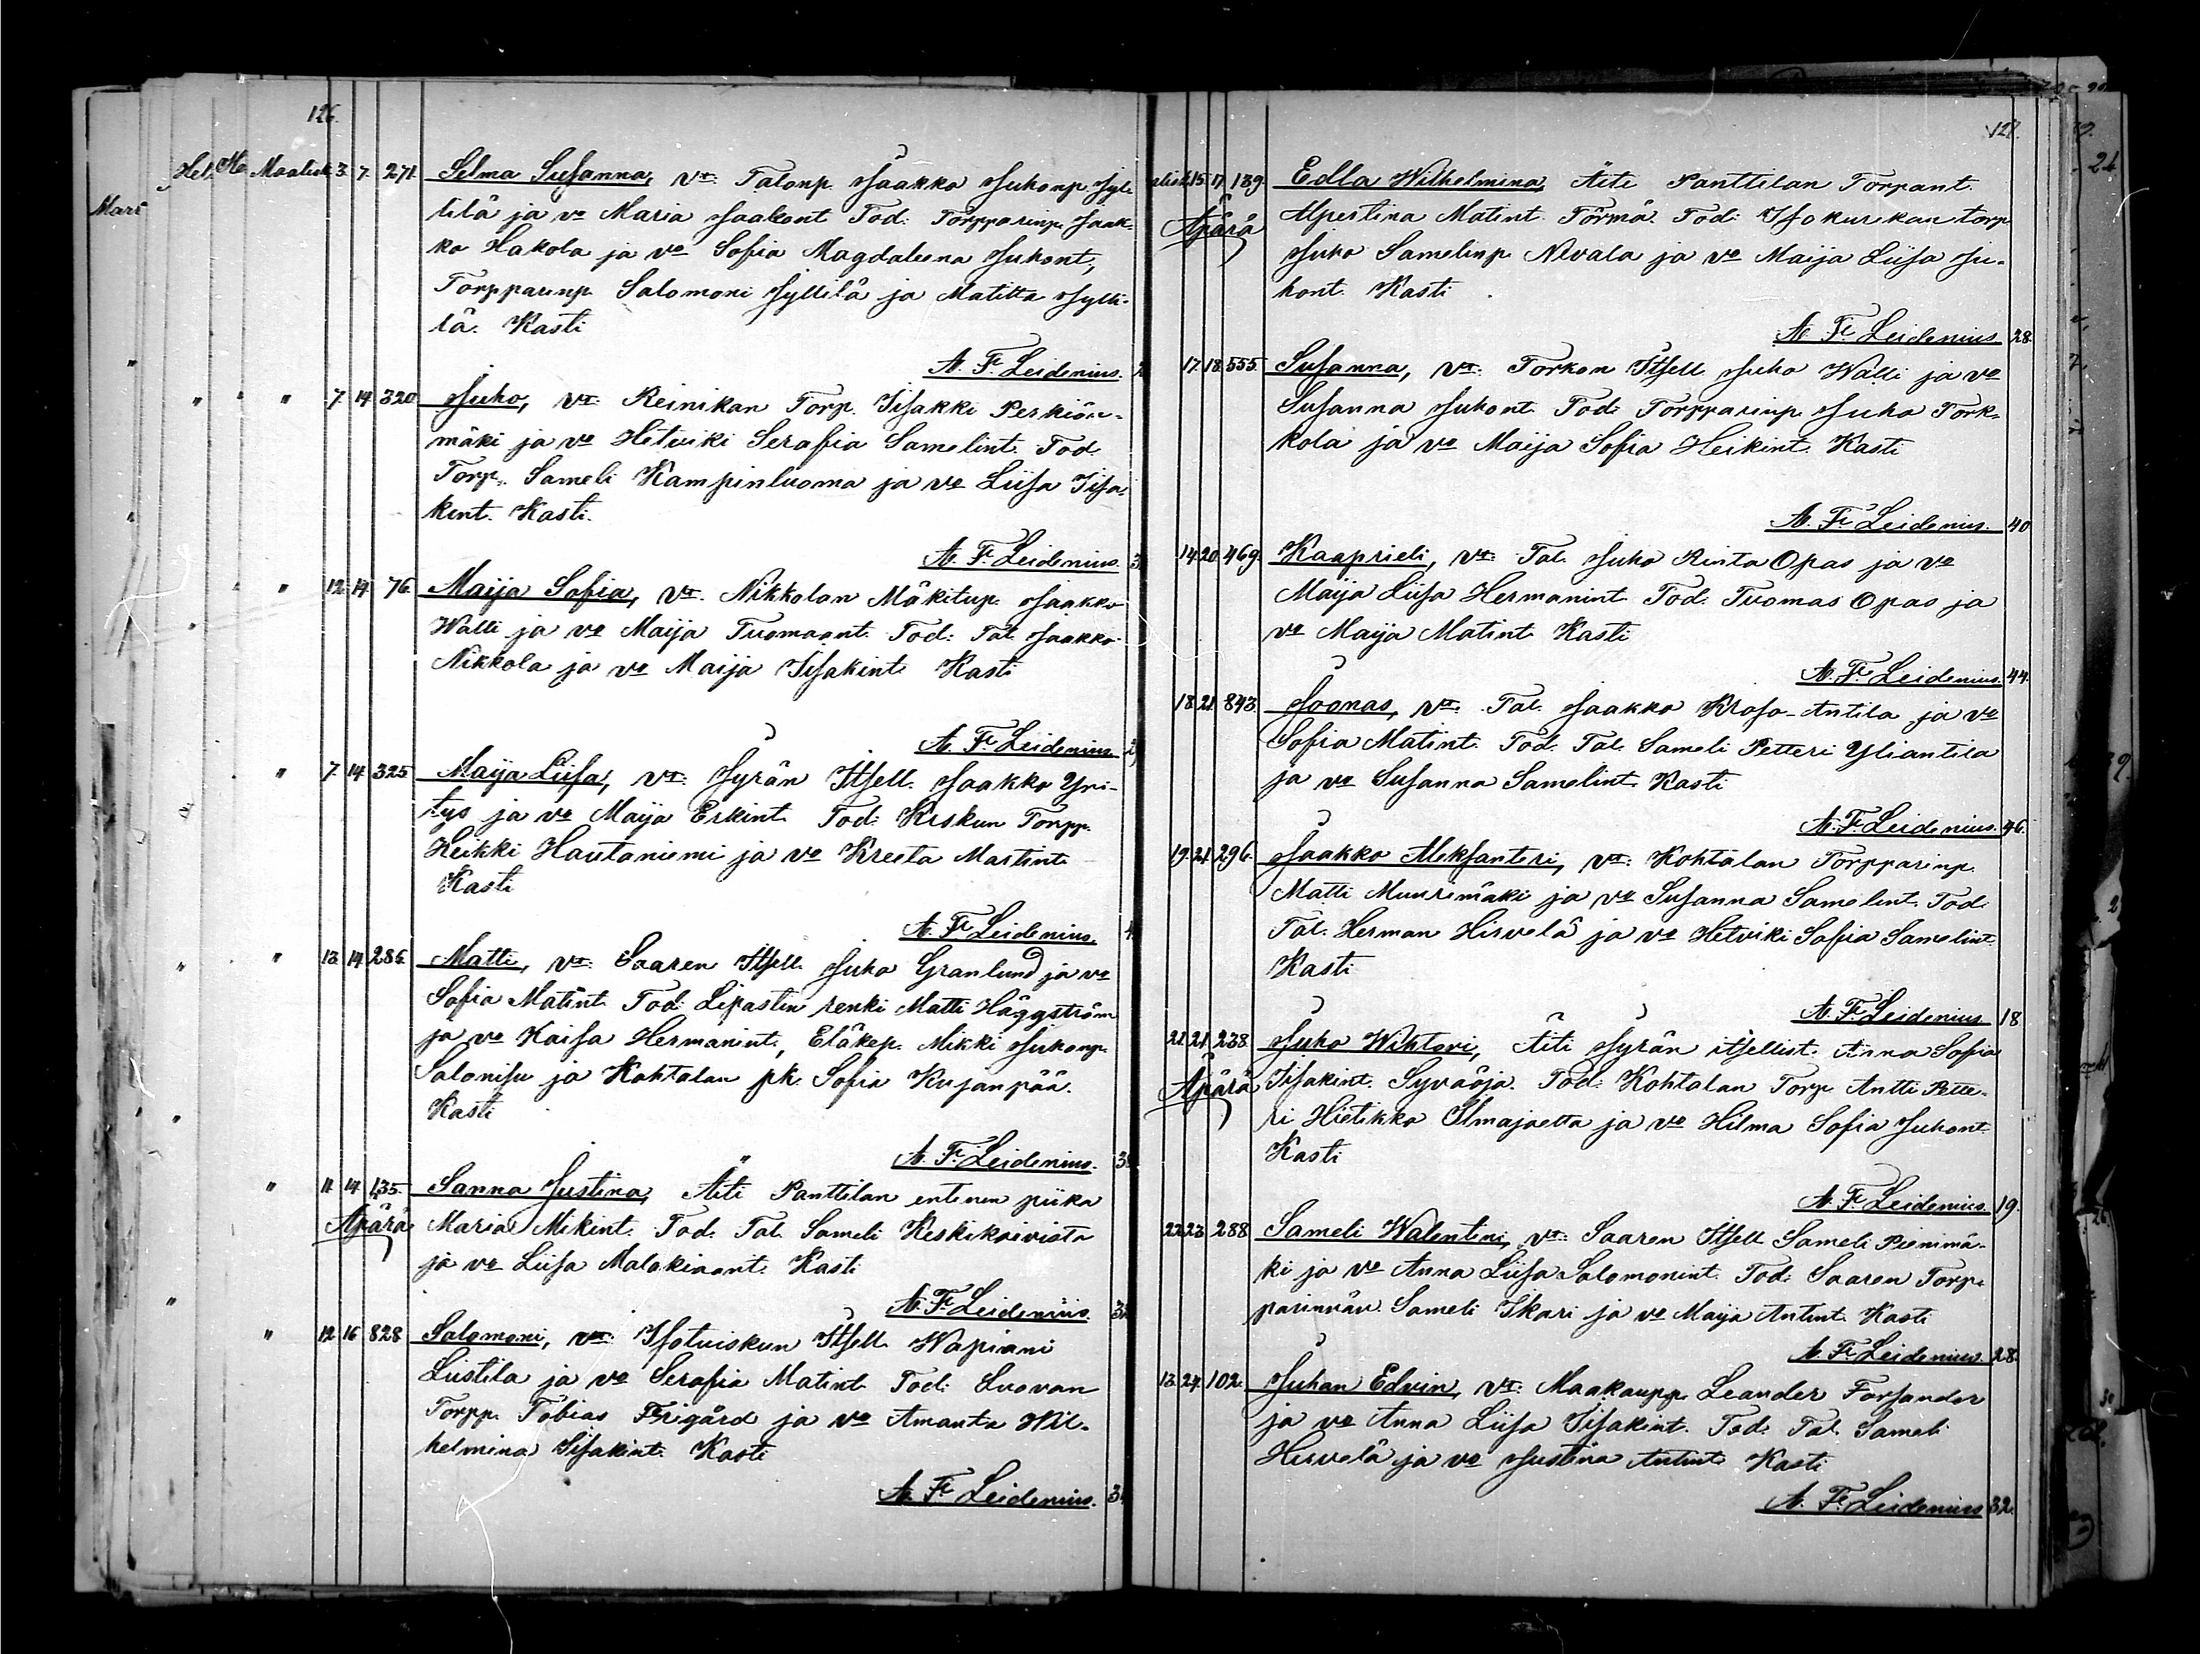 126.
Maalisk. 3. 7. 271. Selma Susanna, vt. Talonp. Jaakko Juhonp. Jyl-
lilä ja vo Maria Jaakont. Tod: Torpparinp. Jaak-
ko Hakola ja vo Sofia Magdaleena Juhont,
Torpparinp. Salomoni Jyllilä ja Matilta Jylli-
lä. Kasti
A. F. Leidenius.
" 7. 14. 320. Juho, vt. Reinikan Torp. Iisakki Perkiön-
mäki ja vo Hetviki Serafia Samelint. Tod.
Torp. Sameli Kampinluoma ja vo Liisa Iisa-
kint. Kasti.
A. F. Leidenius.
" 12. 14. 76. Maija Sofia, vt. Nikkolan Mäkitup. Jaakko
Walli ja vo Maija Tuomaant. Tod: Tal. Jaakko
Nikkola ja vo Maija Iisakint. Kasti
A. F. Leidenius.
" 7. 14. 325. Maija Liisa, vt. Jyrän Itsell. Jaakko Yri-
tys ja vo Maija Erkint. Tod: Keskun Torpp.
Heikki Hautaniemi ja vo Kreeta Martint.
Kasti
A. F. Leidenius.
" 13. 14. 286. Matti, vt. Saaren Itsell. Juho Granlund ja vo
Sofia Matint. Tod: Lipastin renki Matti Häggström
ja vo Kaisa Hermanint, Eläkep. Mikki Juhonp.
Salonisu ja Kohtalan pk. Sofia Kujanpää.
Kasti
A. F. Leidenius.
" 11. 14. 135. Sanna Justina, Äiti Panttilan entinen piika
Äpärä Maria Mikint. Tod. Tal. Sameli Keskikoivisto
ja vo Liisa Malakiaant. Kasti
A. F. Leidenius.
" 12. 16. 828. Salomoni, vt. Isotuiskun Itsell. Wapiani
Liistila ja vo Serafia Matint. Tod: Luovan
Torpp. Tobias Frigård ja vo Amanta Wil-
helmina Iisakint. Kasti
A. F. Leidenius.
127.
15. 17. 189. Edla Wilhelmina, Äiti Panttilan Torpant.
Äpärä Alpertina Matint. Törmä. Tod: Isokurikan torp.
Juho Samelinp. Nevala ja vo Maija Liisa Ju-
hont. Kasti
A. F. Leidenius. 28
17. 18. 555. Susanna, vt. Torkon Itsell. Juho Walli ja vo
Susanna Juhont. Tod: Torpparinp. Juho Tork-
kola ja vo Maija Sofia Heikint. Kasti
A. F. Leidenius. 40
14. 20. 469. Kaaprieli, vt. Tal. Juho Rinta Opas ja vo
Maija Liisa Hermanint. Tod. Tuomas Opas ja
vo Maija Matint. Kasti
A. F. Leidenius. 44.
18. 21. 843. Joonas, vt. Tal. Jaakko Krofo-Antila ja vo
Sofia Matint. Tod. Tal. Sameli Petteri Yliantila
ja vo Susanna Samelint. Kasti
A. F. Leidenius. 46.
19. 21. 296. Jaakko Aleksanteri, vt. Kohtalan Torpparinp.
Matti Muurimäki ja vo Susanna Samelint. Tod.
Tal. Herman Hirvelä ja vo Hetviki Sofia Samelint.
Kasti
A. F. Leidenius. 18
21. 21. 238. Juho Wihtori, Äiti Jyrän itsellist. Anna Sofia
Äpärä Iisakint. Syväoja. Tod: Kohtalan Torp. Antti Pette-
ri Hietikko Ilmajoelta ja vo Hilma Sofia Juhont.
Kasti
A. F. Leidenius. 19.
22. 23. 288. Sameli Walentini, vt. Saaren Itsell. Sameli Pienimä-
ki ja vo Anna Liisa Salomonint. Tod: Saaren Torp-
parinväv. Sameli Ikari ja vo Maija Antint. Kasti
A. F. Leidenius. 28.
13. 24. 102. Juhan Edvin, vt. Maakaupp. Leander Forsander
ja vo Anna Liisa Iisakint. Tod: Tal. Sameli
Hirvelä ja vo Justina Antint. Kasti
A. F. Leidenius. 32.